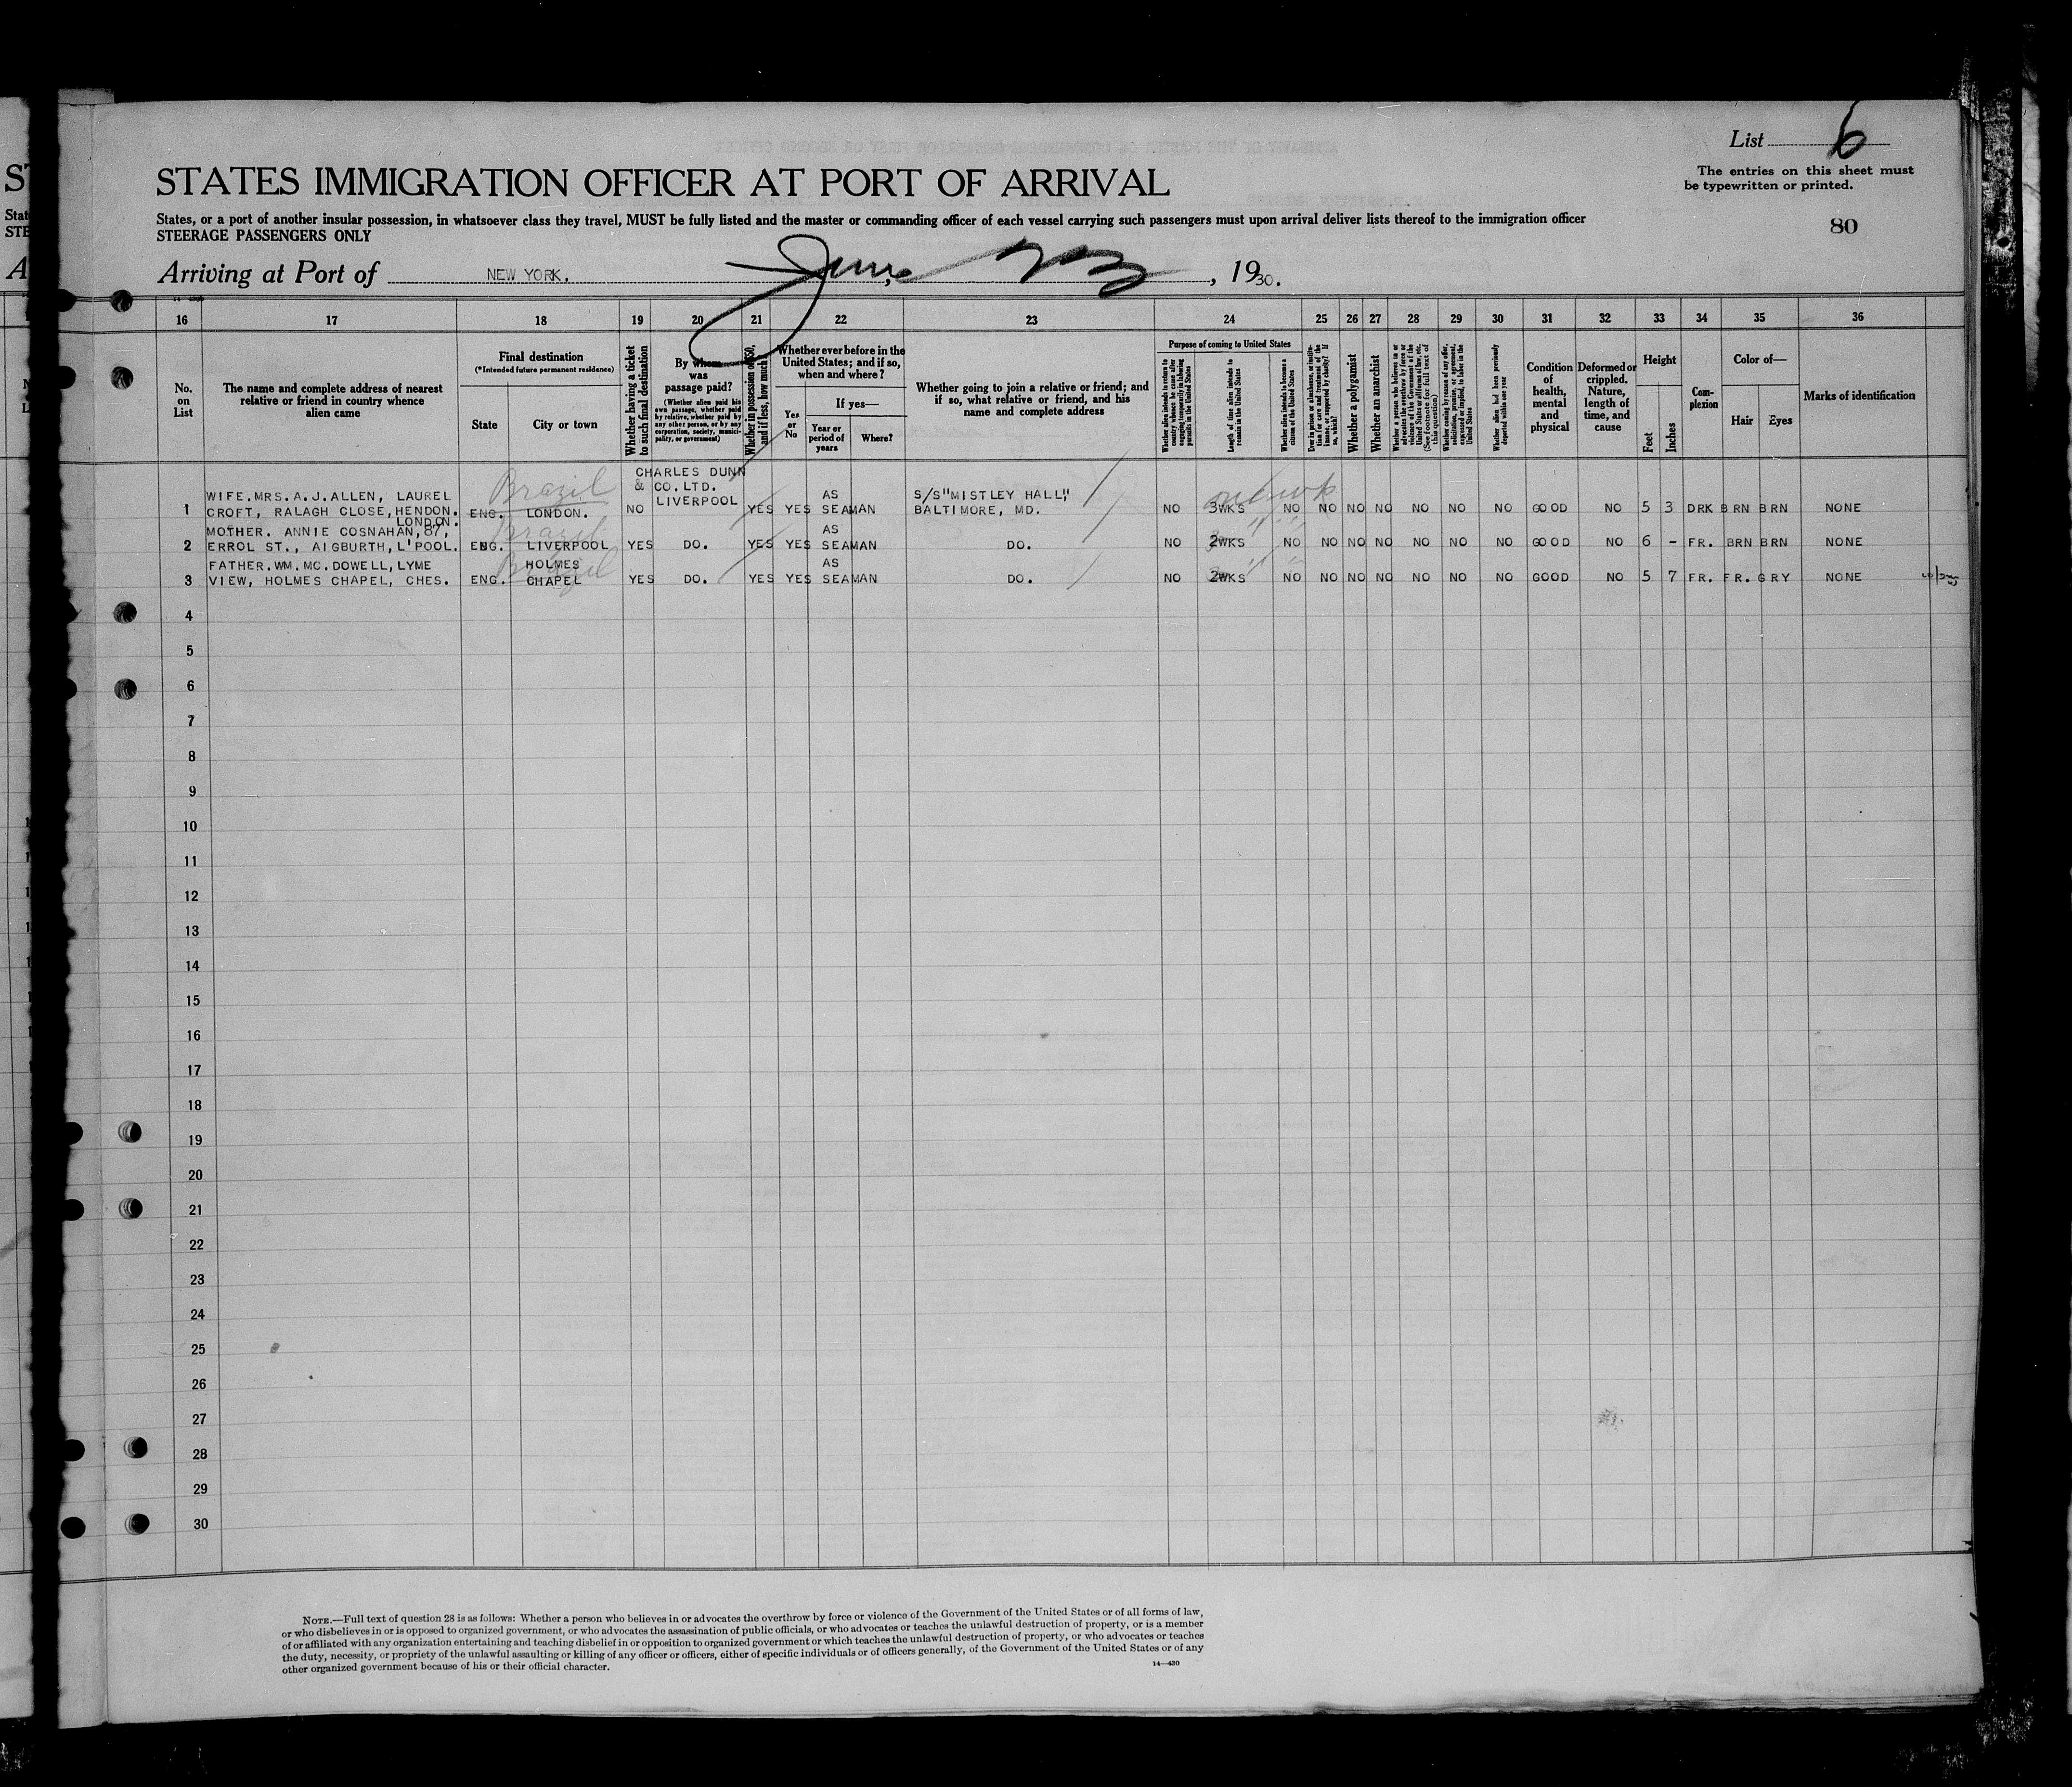 List 6
The entries on this sheet must
be typewritten or printed.
80
STATES IMMIGRATION OFFICER AT PORT OF ARRIVAL
States, or a port of another insular possession, in whatsoever class they travel, MUST be fully listed and the master or commanding officer of each vessel carrying such passengers must upon arrival deliver lists thereof to the immigration officer
STEERAGE PASSENGERS ONLY
Arriving at Port of NEW YORK. June , 1930.
16 17 18 19 20 21 22 23 24 25 26 27 28 29 30 31 32 33 34 35 36
No. on List
The name and complete address of nearest
relative or friend in country whence
alien came
Final destination
(*Intended future permanent residence)
State
City or town
Whether having a ticket
to such final destination
By whom
was
passage paid?
(Whether alien paid his
own passage, whether paid
by relative, whether paid by
any other person, or by any
corporation, society, munici-
pality, or government)
Whether in possession of $50,
and if less, how much?
Whether ever before in the
United States; and if so,
when and where?
Yes or No
If yes—
Year or
period of
years
Where?
Whether going to join a relative or friend; and
if so, what relative or friend, and his
name and complete address
Purpose of coming to United States
Whether alien intends to return to
country whence he came after
engaging temporarily in laboring
pursuits in the United States
Length of time alien intends to
remain in the United States
Whether alien intends to become a
citizen of the United States
Ever in prison or almshouse, or institu-
tion for care and treatment of the
insane, or supported by charity? If
so, which?
Whether a polygamist
Whether an anarchist
Whether a person who believes in or
advocates the overthrow by force or
violence of the Government of the
United States or all forms of law, etc.
(See footnote for full text of
this question)
Whether coming by reason of any offer,
solicitation, promise, or agreement,
expressed or implied, to labor in the
United States
Whether alien had been previously
deported within one year
Condition
of
health,
mental
and
physical
Deformed or
crippled.
Nature,
length of
time, and
cause
Height
Feet
Inches
Com-
plexion
Color of—
Hair
Eyes
Marks of identification
CHARLES DUNN
& CO. LTD.
LIVERPOOL
Brazil
1 WIFE.MRS.A.J.ALLEN, LAUREL
CROFT, RALAGH CLOSE, HENDON.
LONDON.
ENG. LONDON. NO YES YES AS SEAMAN S/S"MISTLEY HALL",
BALTIMORE, MD. NO 3WKS NO NO NO NO NO NO NO GOOD NO 5 3 DRK BRN BRN NONE
Brazil
2 MOTHER. ANNIE COSNAHAN, 87,
ERROL ST., AIGBURTH, L'POOL. ENG. LIVERPOOL YES DO. YES YES AS SEAMAN DO. NO 2WKS NO NO NO NO NO NO NO GOOD NO 6 - FR. BRN BRN NONE
Brazil
3 FATHER.WM.MC.DOWELL, LYME
VIEW, HOLMES CHAPEL, CHES. ENG. HOLMES CHAPEL YES DO. YES YES AS SEAMAN DO. NO 2WKS NO NO NO NO NO NO NO GOOD NO 5 7 FR. FR. GRY NONE
4
5
6
7
8
9
10
11
12
13
14
15
16
17
18
19
20
21
22
23
24
25
26
27
28
29
30
NOTE.—Full text of question 28 is as follows: Whether a person who believes in or advocates the overthrow by force or violence of the Government of the United States or of all forms of law,
or who disbelieves in or is opposed to organized government, or who advocates the assassination of public officials, or who advocates or teaches the unlawful destruction of property, or is a member
of or affiliated with any organization entertaining and teaching disbelief in or opposition to organized government or which teaches the unlawful destruction of property, or who advocates or teaches
the duty, necessity, or propriety of the unlawful assaulting or killing of any officer or officers, either of specific individuals or of officers generally, of the Government of the United States or of any
other organized government because of his or their official character.
14—430